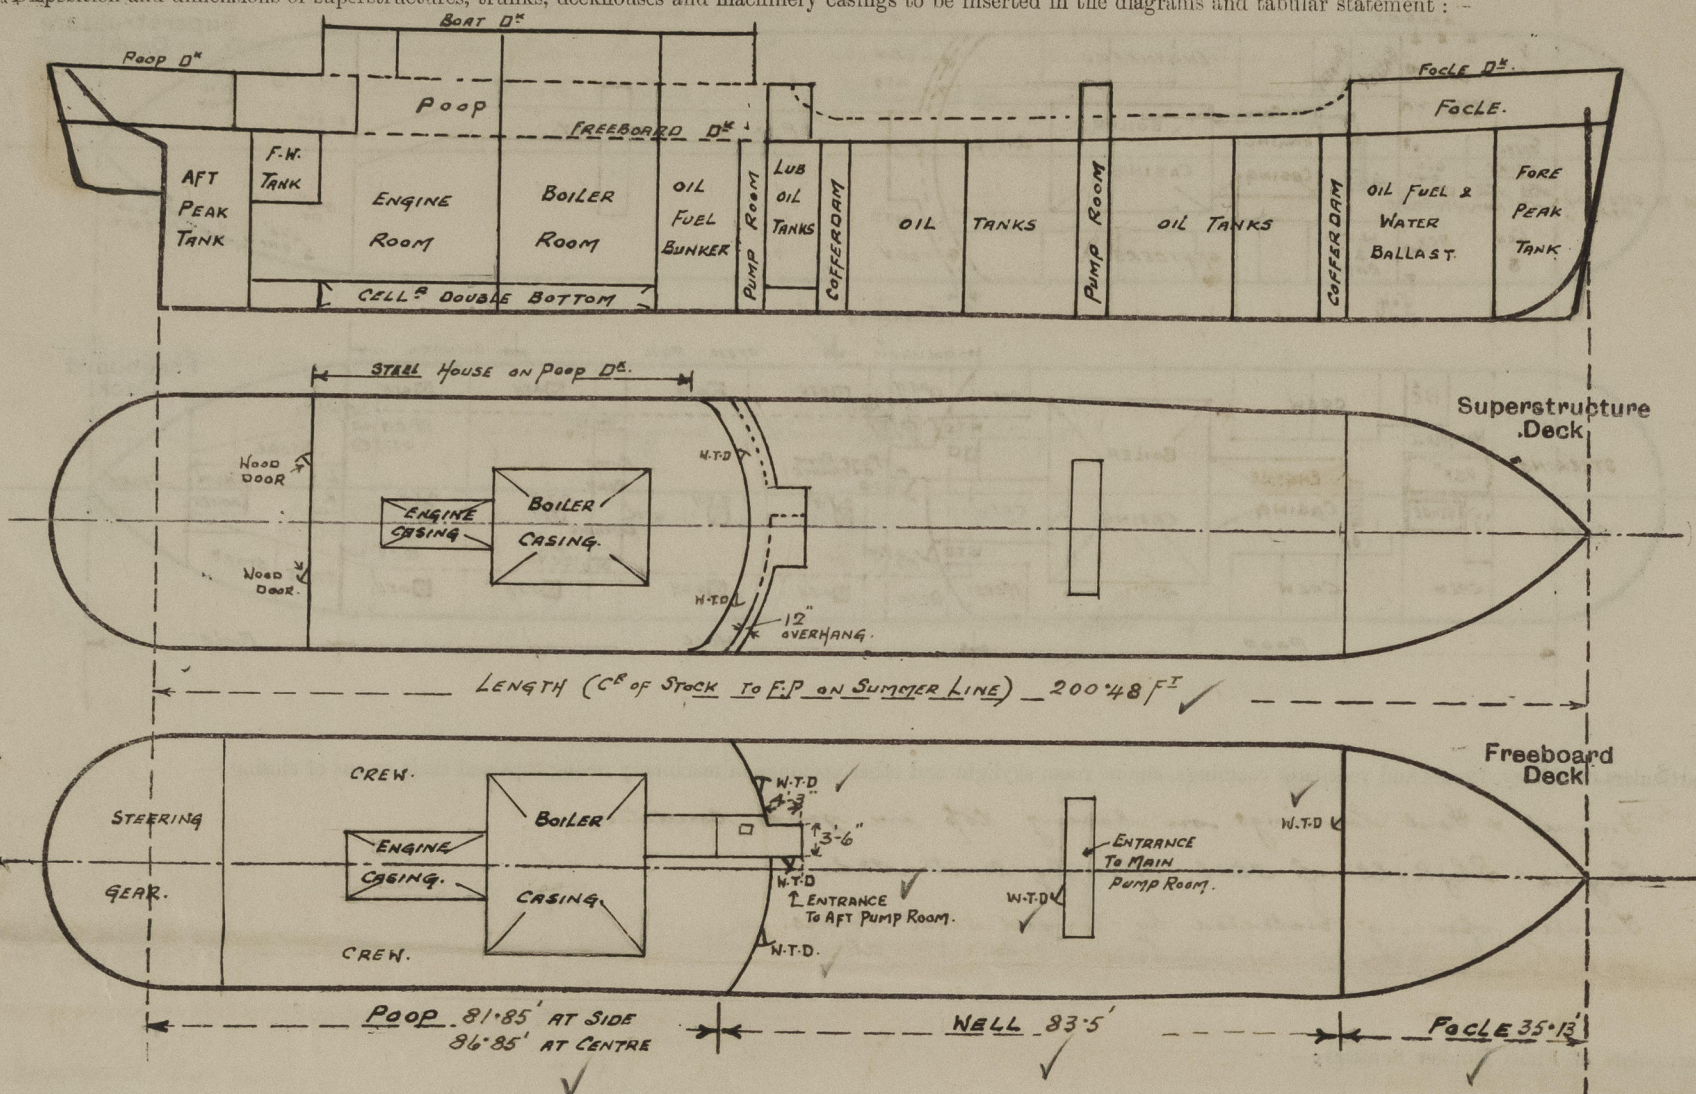 position and dimensions of superstructures, trunks, deckhouses and machinery casings to be inserted in the diagrams and tabular statement : -
BOAT Dᴷ
POOP Dᴷ
FOCLE Dᴷ.
POOP
FOCLE.
FREEBOARD Dᴷ
AFT
PEAK
TANK
F.W.
TANK
ENGINE
ROOM
BOILER
ROOM
OIL
FUEL
BUNKER
PUMP ROOM
LUB
OIL
TANKS
COFFERDAM
OIL TANKS
PUMP ROOM
OIL TANKS
COFFERDAM
OIL FUEL &
WATER
BALLAST.
FORE
PEAK
TANK
CELLᴿ DOUBLE BOTTOM
STEEL HOUSE ON POOP Dᴷ.
Superstructure
Deck
WOOD
DOOR
W.T.D
BOILER
CASING.
ENGINE
CASING
WOOD
DOOR.
W.T.D
12"
OVERHANG.
LENGTH (Cᴿ OF STOCK TO F.P ON SUMMER LINE) 200·48 Fᵀ
Freeboard
Deck
CREW.
W.T.D
4'-3"
STEERING
GEAR.
BOILER
CASING.
ENGINE
CASING.
3'-6"
W.T.D
ENTRANCE
TO AFT PUMP ROOM.
ENTRANCE
TO MAIN
PUMP ROOM.
W.T.D
W.T.D
CREW.
W.T.D.
POOP 81·85' AT SIDE
86·85' AT CENTRE
WELL 83·5'
FOCLE 35·13'